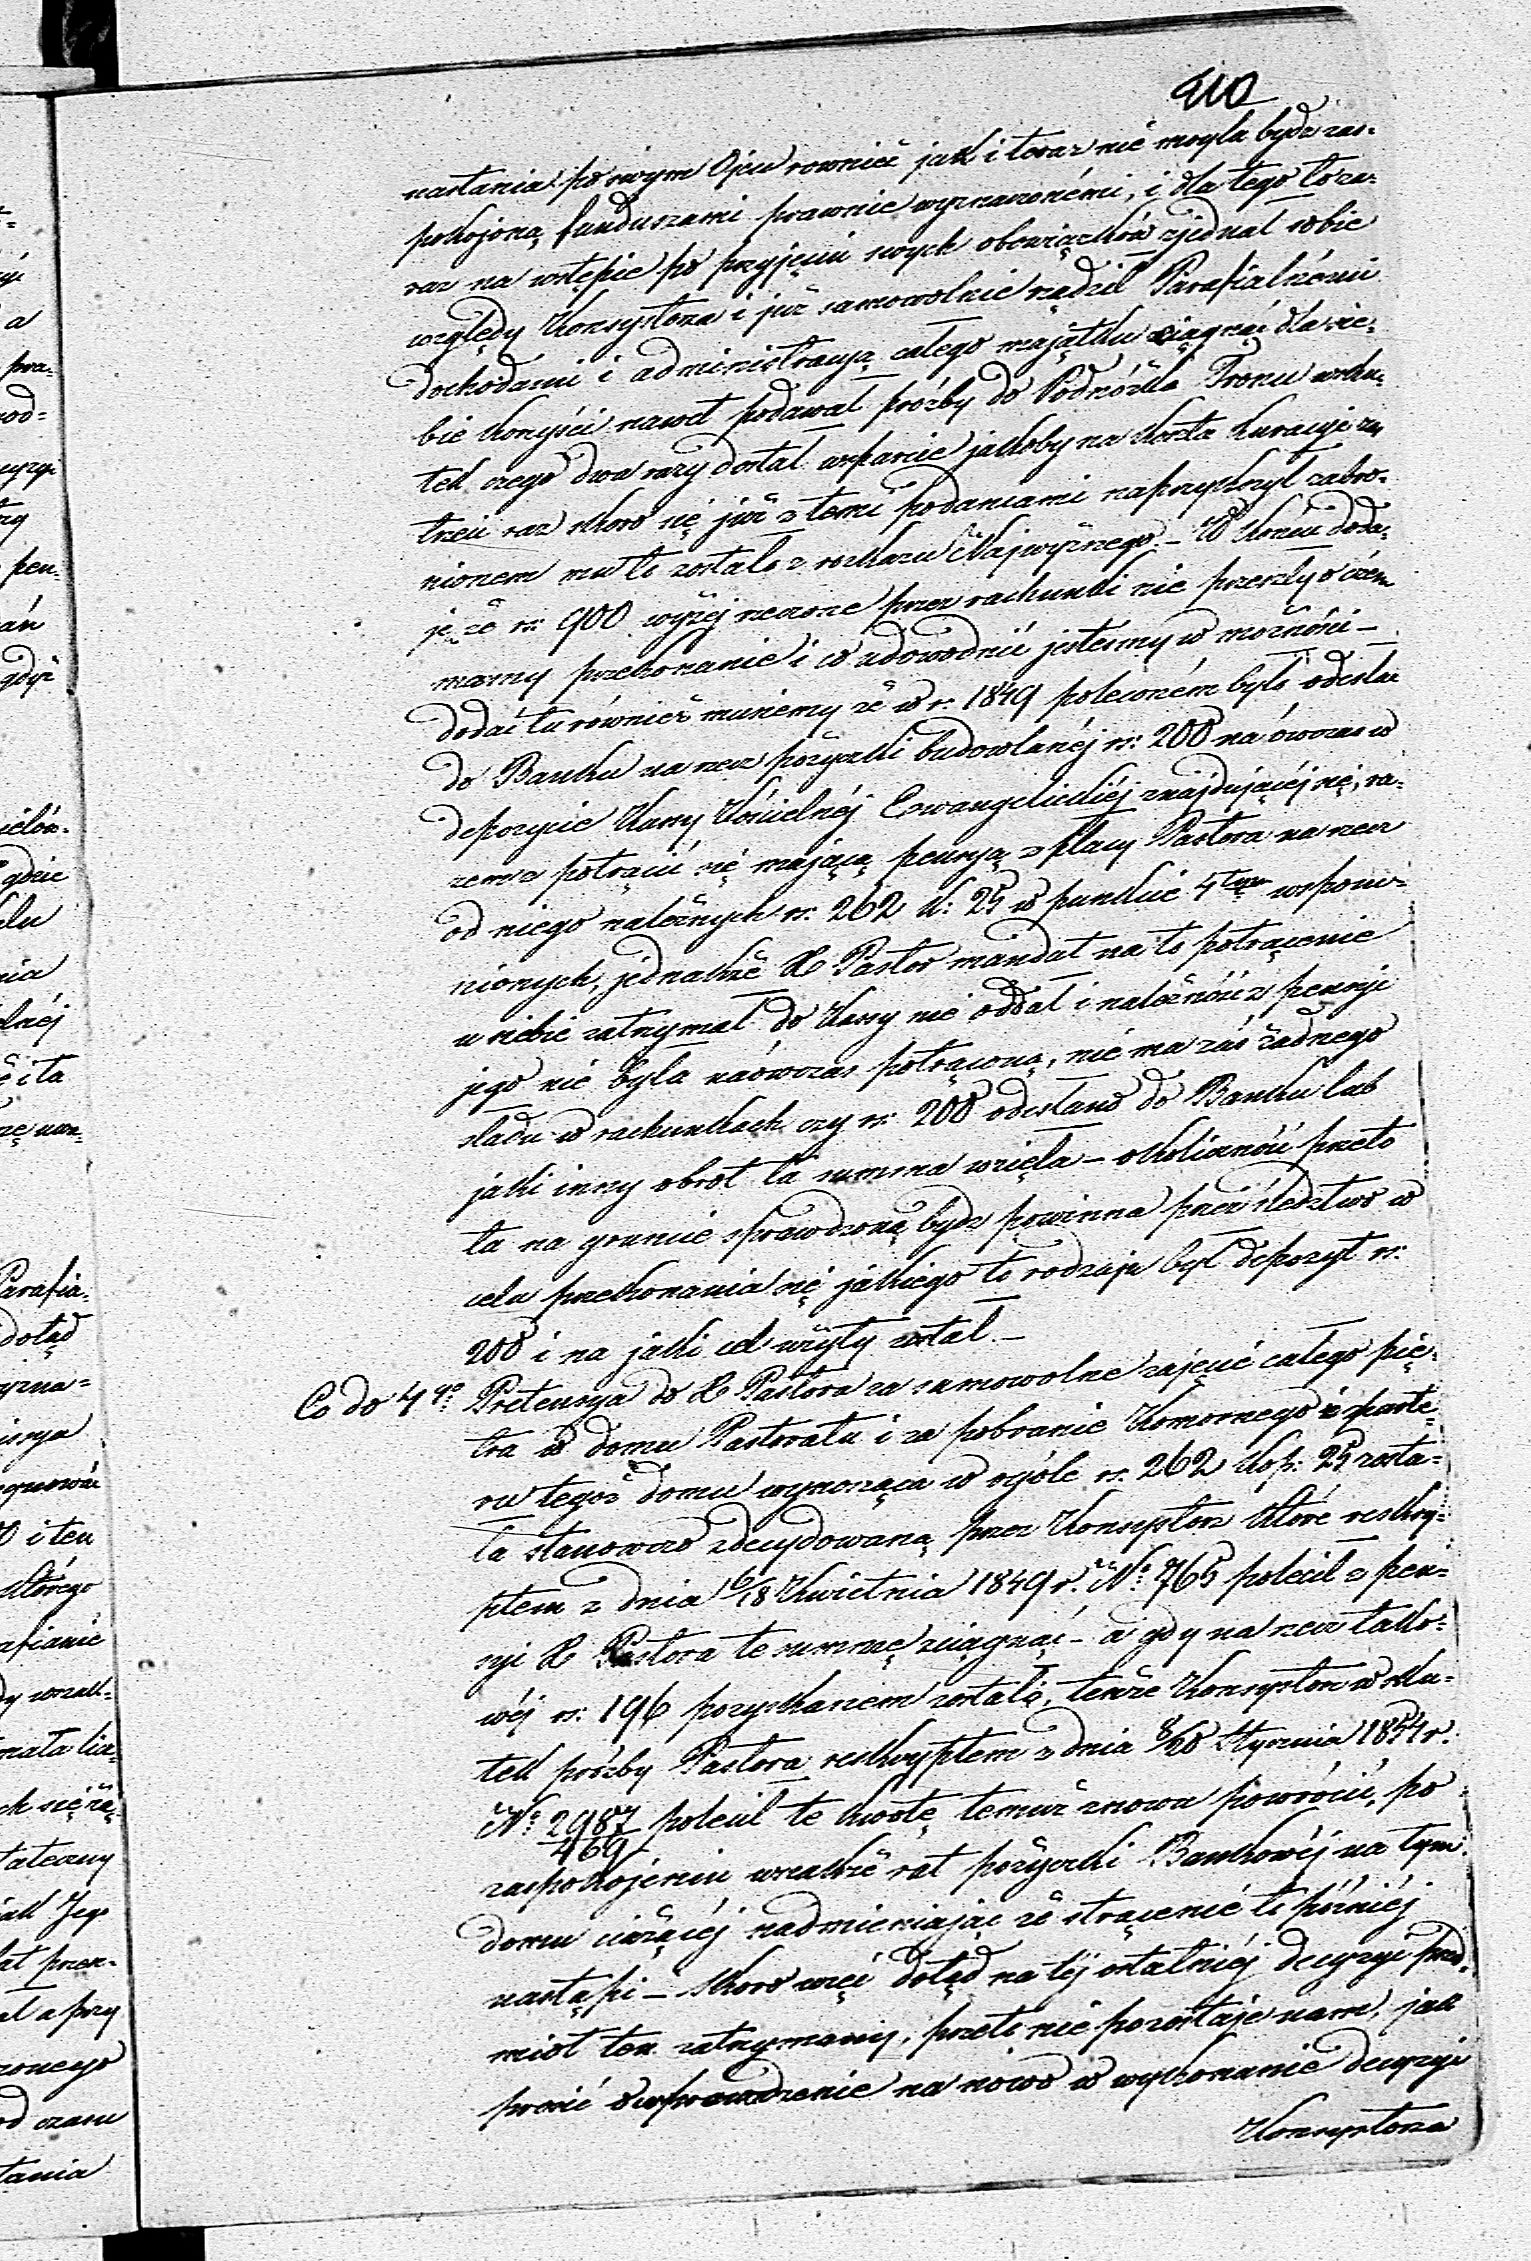 210
nastania po swym Ojcu rownież jak i teraz nie mogła bydź zas-
pokojoną funduszami prawnie wyznaczonémi, i dla tego to za-
raz na wstępie po przyjęciu swych obowiązków zjednał sobie
względy Konsystorza i już samowolnie rządził Parafialnémi
dochodami i administracyą całego majątku ciągnąć dla sie-
bie korzyści nawet podawał prośby do Podnóżka Tronu wsku-
tek czego dwa razy dostał wsparcie jakoby na koszta kuracyi za
trzeci raz skoro się już z temi podaniami naprzykrzył zabro-
nionem mu to zostało z rozkazu Najwyższego. – W końcu doda-
je że rs: 900 wyżej rzeczone przez rachunki nie przeszły o czém
mamy przekonanie i co udowodnić jesteśmy w możności –
dodać tu również musiemy że w r. 1849 poleconém było odesłać
do Banku na rzecz pożyczki budowlanéj rs: 200 na ówczas w
depozycie Kassy Kościelnéj Ewangelickiéj znajdującéj się, ra-
zem z potrącić się mającą pensyą z płacy Pastora na rzecz
od niego należnych rs: 262 k: 25 w punkcie 4tym wspom-
nionych, jednakże X Pastor mandat na to potrącenie
u siebie zatrzymał do Kassy nie oddał i należność z pensyi
jego nie była naówczas potrąconą, nie ma zaś żadnego
śladu w rachunkach czy rs: 200 odesłano do Banku lub
jaki inny obrot ta summa wzięła – okoliczność przeto
ta na gruncie sprawdzoną bydź powinna przez śledztwo w
celu przekonania się jakiego to rodzaju był depozyt rs:
200 i na jaki cel użyty został. –
Co do 4go Pretensya do X Pastora za samowolne zajęcie całego pię-
tra w domu Pastoratu i za pobranie Komornego z parte-
ru tegoż domu wynosząca w ogóle rs: 262 kop: 25 zosta-
ła stanowczo zdecydowaną przez Konsystorz które reskry-
ptem z dnia 6/18 Kwietnia 1849 r. No 765 polecił z pen-
syi X Pastora te summę ściągnąć – a gdy na rzecz tako-
wéj rs: 196 pozyskanem zostało, tenże Konsystorz w sku-
tek prośby Pastora reskryptem z dnia 8/20 Stycznia 1851 r.
No 2987/469 polecił te kwotę temuż znowu powrócić, po
zaspokojeniu wszakże rat pożyczki Bankowéj na tym
domu ciążącéj nadmieniając że strącenie to później
nastąpi – skoro więc dotąd na téj ostatniéj decyzyi przed-
miot ten zatrzymany, przeto nie pozostaje nam, jak
prosić o wprowadzenie na nowo w wykonanie decyzyi
Konsystorza